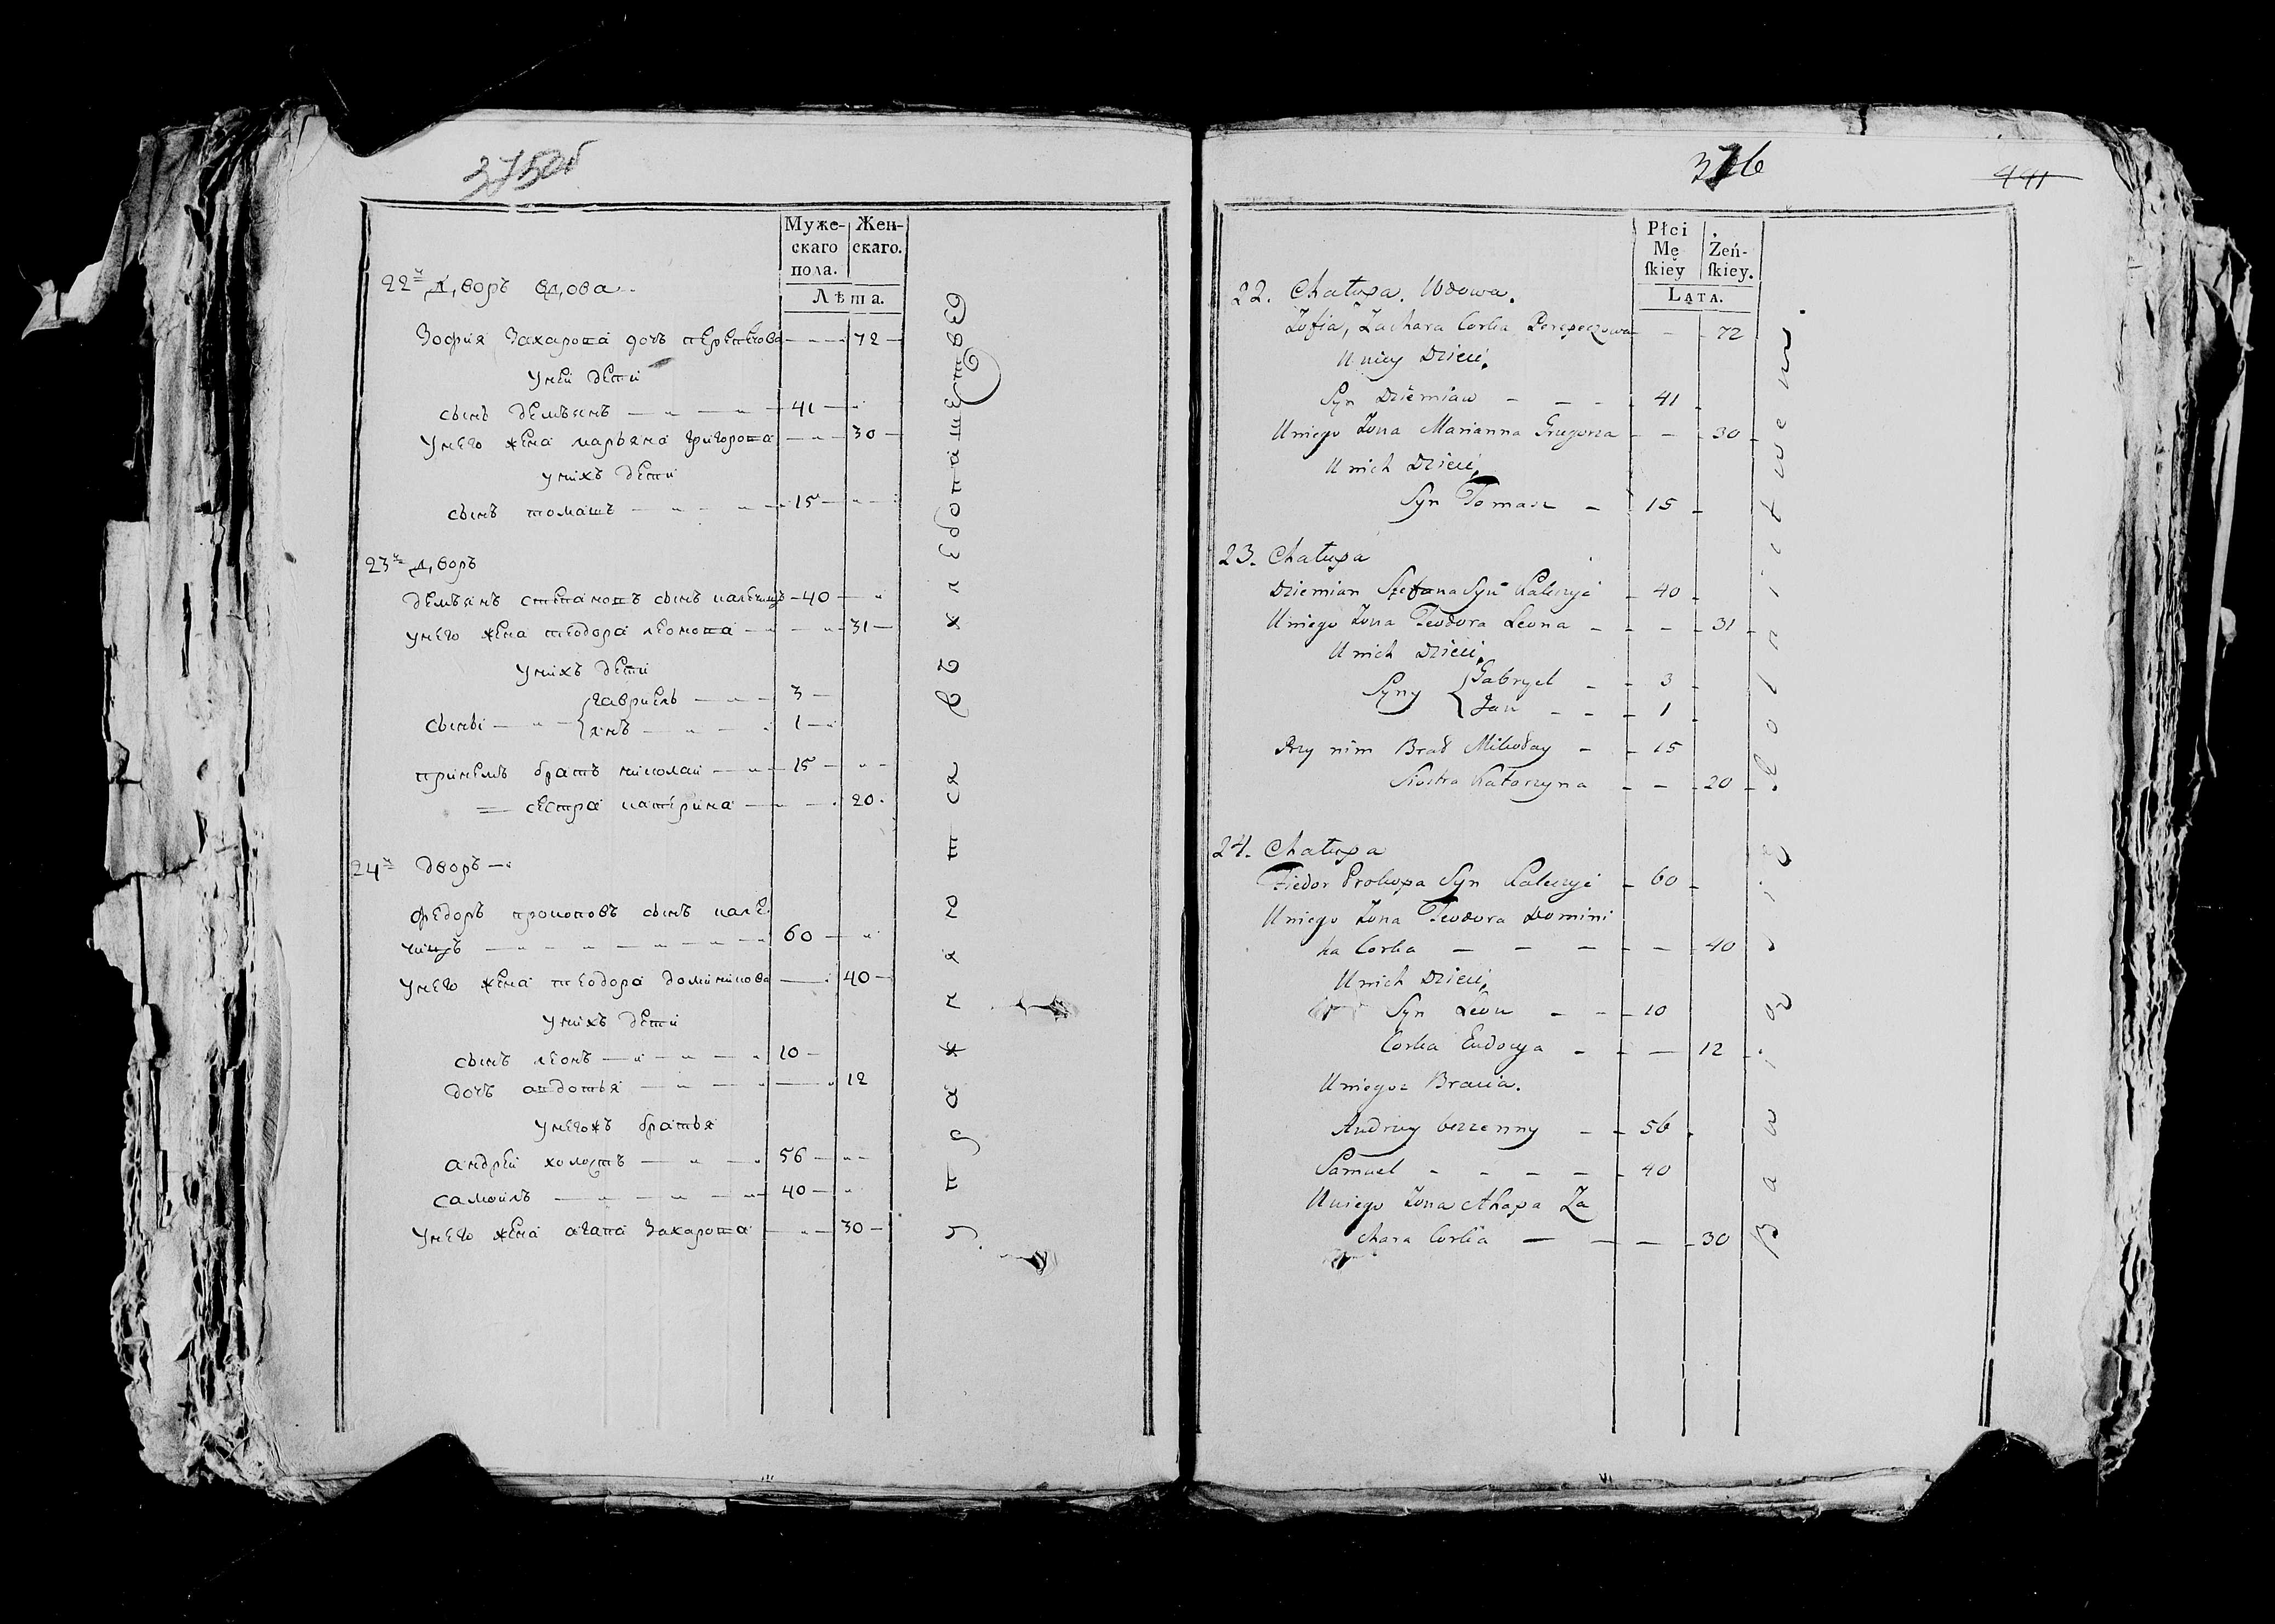 375об
Муже-
скаго
пола.
Жен-
скаго.
Лѣта.
22й Дворъ вдова
Зофия Захарова дочь перепечова 72
у неи дети
сынъ демьянъ 41
у него жена марьяна григорова 30
у нихъ дети
сынъ томашъ 15
23й Дворъ
демьянъ степановъ сынъ 40
у него жена теодора леонова 31
у нихъ дети
гавриель 3
сыны
янъ 1
принемъ братъ николаи 15
сестра катерина 20
24й дворъ
федоръ прокоповъ сынъ кале
чицъ 60
у него жена теодора доминикова 40
у нихъ дети
сынъ леонъ 10
дочь авдотья 12
у негожъ братья
андрей холостъ 56
самоилъ 40
у него жена агапа Захарова 30
упражняются в хлебопашестве
376
441
Płci
Mę
ſkiey
Żeń-
ſkiey.
Lata.
22. Chałupa. Wdowa.
Zofia, Zachara Corka Perepeczowa - 72
U niey Dzieci,
Syn Dziemian - - - 41
U niego Żona Marianna Gregorza - - 30
U nich Dzieci,
Syn Tomasz - 15
23. Chałupa
Dziemian Stefana Syn - 40
U niego Żona Teodora Leona - - - 31
U nich Dzieci,
Gabryel - - 3
Syny
Jan - - - 1
Przy nim Brat Mikołay - - 15
Siostra Katarzyna - - 20
24. Chałupa
Fiedor Prokopa Syn - 60
U niego Żona Teodora Domini
ka Corka - - - - - 40
U nich Dzieci,
Syn Leon - - - 10
Corka Eudocya - - - 12
U niegoż Bracia.
Andrzey bezzenny - - 56
Samuel - - - - - 40
U niego Żona Ahapa Za
chara Corka - - - 30
Bawią się rolnictwem.